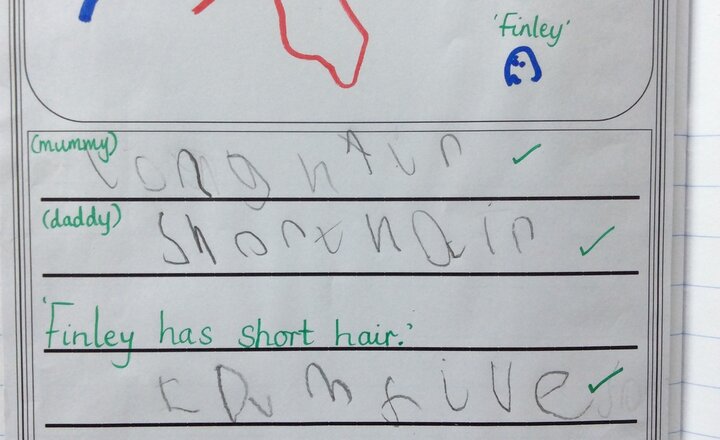 'Finley'
(mummy) long hAir
(daddy) short hair
'Finley has short hair.'
five